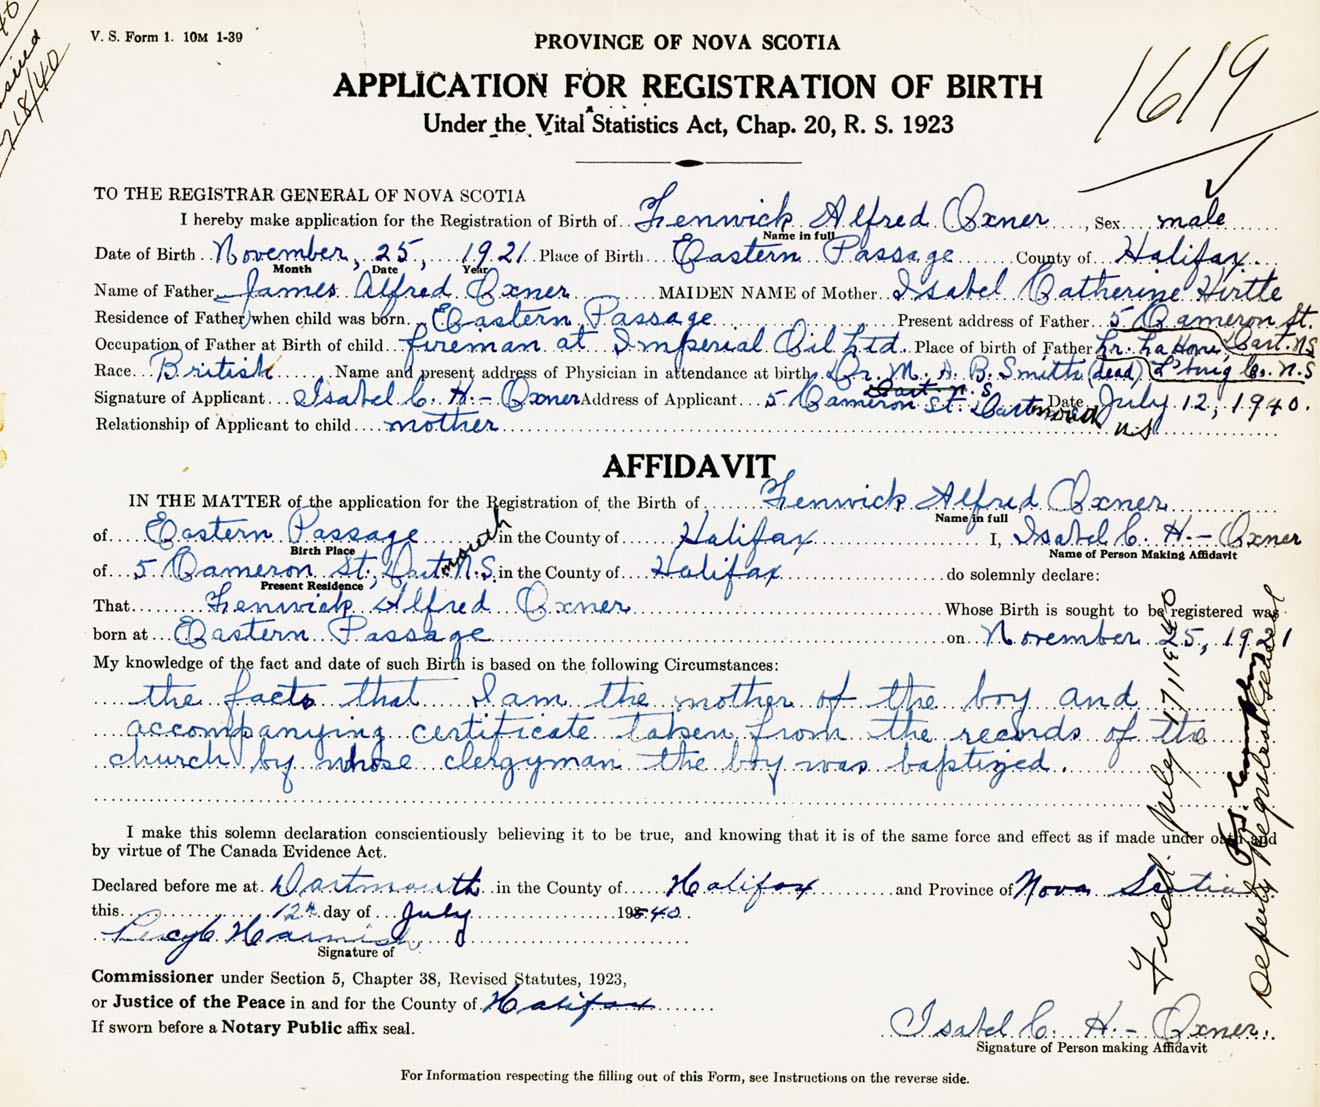 V. S. Form 1. 10M 1-39
PROVINCE OF NOVA SCOTIA
APPLICATION FOR REGISTRATION OF BIRTH
Under the Vital Statistics Act, Chap. 20, R. S. 1923
1619
TO THE REGISTRAR GENERAL OF NOVA SCOTIA
I hereby make application for the Registration of Birth of Fenwick Alfred Oxner, Sex male
Name in full
Date of Birth November, 25, 1921 Place of Birth Eastern Passage County of Halifax
Month Date Year
Name of Father James Alfred Oxner MAIDEN NAME of Mother Isabel Catherine Hirtle
Residence of Father when child was born Eastern Passage Present address of Father 5 Cameron St. Dart. N.S
Occupation of Father at Birth of child fireman at Imperial Oil Ltd. Place of birth of Father Lr. LaHave, L'burg Co. N.S
Race British Name and present address of Physician in attendance at birth Dr. M. A. B. Smith (dead) Dart. N. S
Signature of Applicant Isabel C. H.- Oxner Address of Applicant 5 Cameron St. Dartmouth N.S Date July 12, 1940.
Relationship of Applicant to child mother
AFFIDAVIT
IN THE MATTER of the application for the Registration of the Birth of Fenwick Alfred Oxner
Name in full
of Eastern Passage in the County of Halifax I, Isabel C. H.- Oxner
Birth Place Name of Person Making Affidavit
of 5 Cameron St., Dartmouth N.S. in the County of Halifax do solemnly declare:
Present Residence
That Fenwick Alfred Oxner Whose Birth is sought to be registered was
born at Eastern Passage on November 25, 1921
My knowledge of the fact and date of such Birth is based on the following Circumstances:
the facts that I am the mother of the boy and
accompanying certificate taken from the records of the
church by whose clergyman the boy was baptized.
I make this solemn declaration conscientiously believing it to be true, and knowing that it is of the same force and effect as if made under oath and
by virtue of The Canada Evidence Act.
Declared before me at Dartmouth in the County of Halifax and Province of Nova Scotia
this 12th day of July 1940.
Percy C Harnish
Signature of
Commissioner under Section 5, Chapter 38, Revised Statutes, 1923,
or Justice of the Peace in and for the County of Halifax
If sworn before a Notary Public affix seal.
Isabel C. H.- Oxner.
Signature of Person making Affidavit
For Information respecting the filling out of this Form, see Instructions on the reverse side.
Filed July 17, 1940
Deputy Registrar General